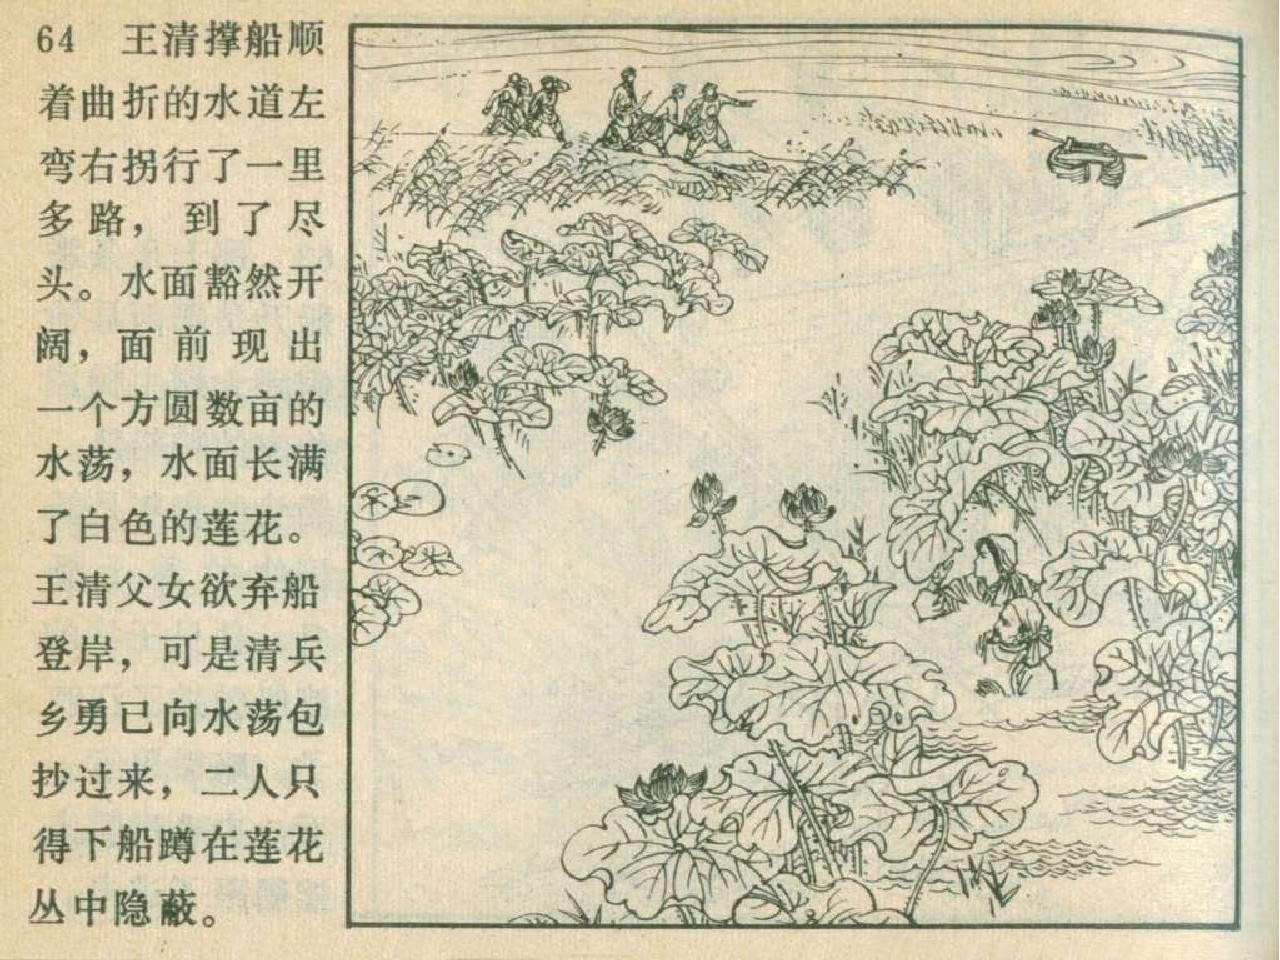 64 王清撑船顺
着曲折的水道左
弯右拐行了一里
多路，到了尽
头。水面豁然开
阔，面前现出
一个方圆数亩的
水荡，水面长满
了白色的莲花。
王清父女欲弃船
登岸，可是清兵
乡勇已向水荡包
抄过来，二人只
得下船蹲在莲花
丛中隐蔽。